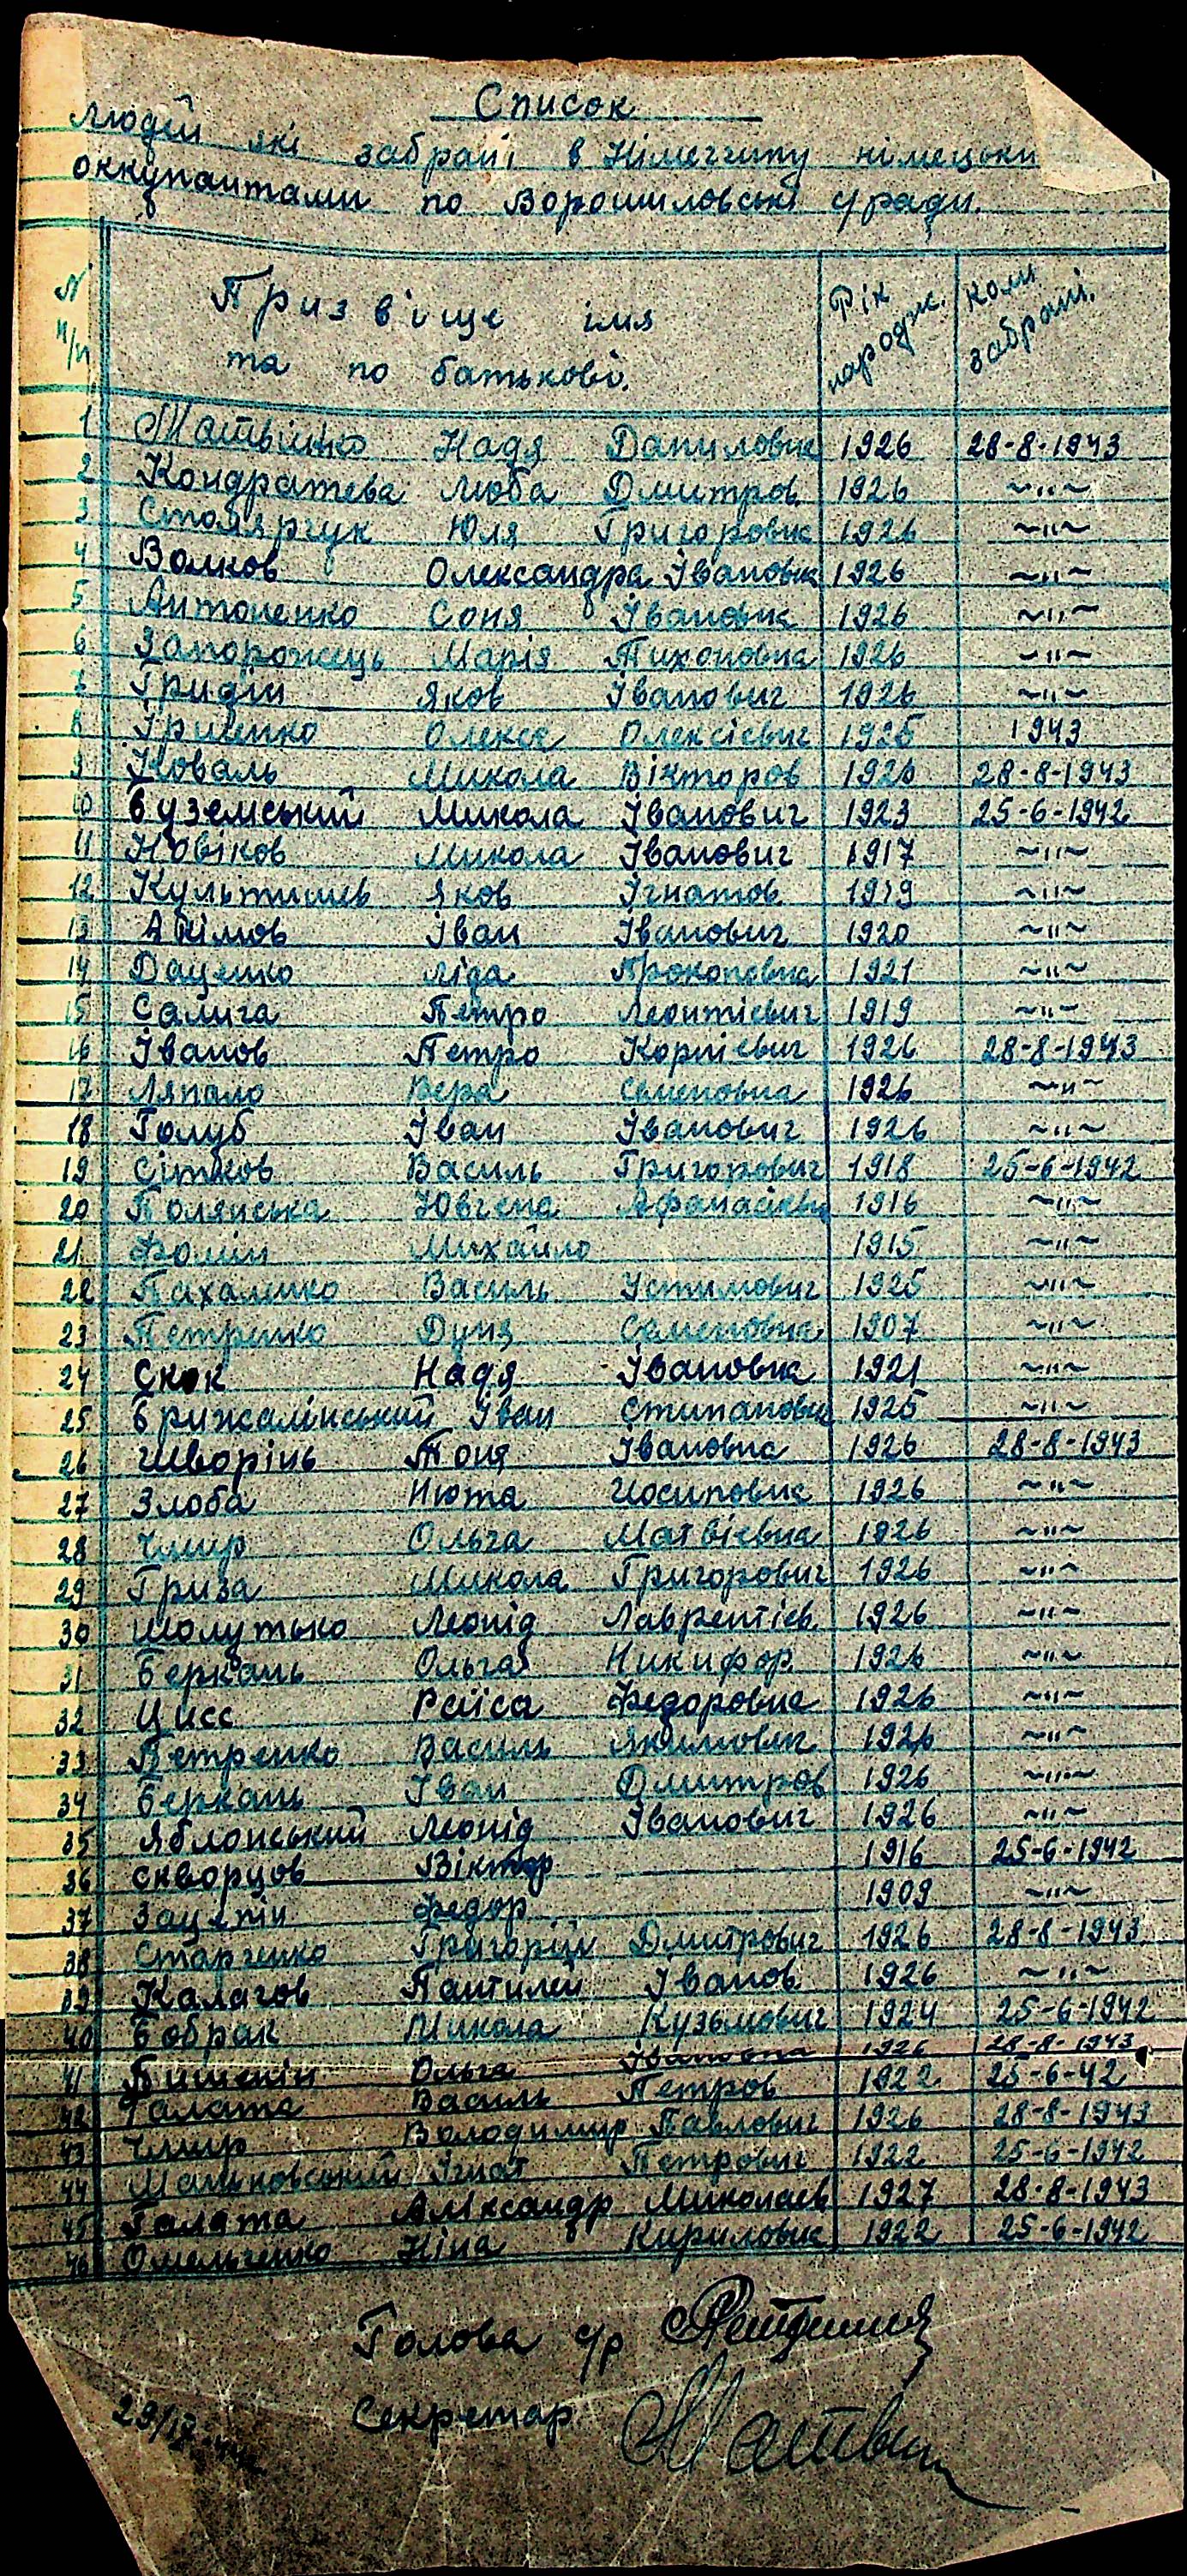 Список
людей які забрані в Німеччину німецьки
оккупантами по Ворошиловські с/ради.
N п/п Призвіще імя та по батькові. Рік народж. коли забрані.
1 Матвієнко Надя Даниловна 1926 28-8-1943
2 Кондратева Люба Дмитров 1926 ~"~
3 Столярчук Юля Григоровна 1926 ~"~
4 Волков Олександра Івановна 1926 ~"~
5 Антоненко Соня Івановна 1926 ~"~
6 Запорожець Марія Тихоновна 1926 ~"~
7 Гридін Яков Іванович 1926 ~"~
8 Гриценко Олексє Олексієвич 1925 1943
9 Коваль Микола Вікторов 1926 28-8-1943
10 Буземський Микола Іванович 1923 25-6-1942
11 Новіков Микола Іванович 1917 ~"~
12 Яков Ігнатов 1919 ~"~
13 Акімов Іван Іванович 1920 ~"~
14 Даценко Ліда Прокоповна 1921 ~"~
15 Салига Петро Леонтієвич 1919 ~"~
16 Іванов Петро Корнієвич 1926 28-8-1943
17 Ляпало Вера Семеновна 1926 ~"~
18 Голуб Іван Іванович 1926 ~"~
19 Сітков Василь Григорович 1918 25-6-1942
20 Полянська Ювгена Афанасієвн 1916 ~"~
21 Фомін Михайло 1915 ~"~
22 Пахаленко Василь Устимович 1925 ~"~
23 Петренко Дуня Семеновна 1907 ~"~
24 Скок Надя Івановна 1921 ~"~
25 Іван 1925 ~"~
26 Шворінь Тоня Івановна 1926 28-8-1943
27 Злоба Нюта Йосиповна 1926 ~"~
28 Чмир Ольга Матвієвна 1926 ~"~
29 Гриза Микола Григорович 1926 ~"~
30 Шолутько Леонід Лаврентієв 1926 ~"~
31 Беркань Ольга Никифор 1926 ~"~
32 Цисс Раїса Федоровна 1926 ~"~
33 Петренко Василь Якимович 1926 ~"~
34 Беркань Іван Дмитров 1926 ~"~
35 Яблонський Леонід Іванович 1926 ~"~
36 Скворцов Віктор 1916 25-6-1942
37 Зацепін Федор 1909 ~"~
38 Старченко Григорій Дмитрович 1926 28-8-1943
39 Калагов Пантилей Іванов 1926 ~"~
40 Бобрак Микола Кузьмович 1924 25-6-1942
41 Ольга Івановна 1926 28-8-1943
42 Галата Василь Петров 1922 25-6-42
43 Чмир Володимир Павлович 1926 28-8-1943
44 Малиновський Ігнат Петрович 1922 25-6-1942
45 Галата Александр Миколаєв 1927 28-8-1943
46 Омельченко Ніна Кириловна 1922 25-6-1942
Голова с/р
Секретар